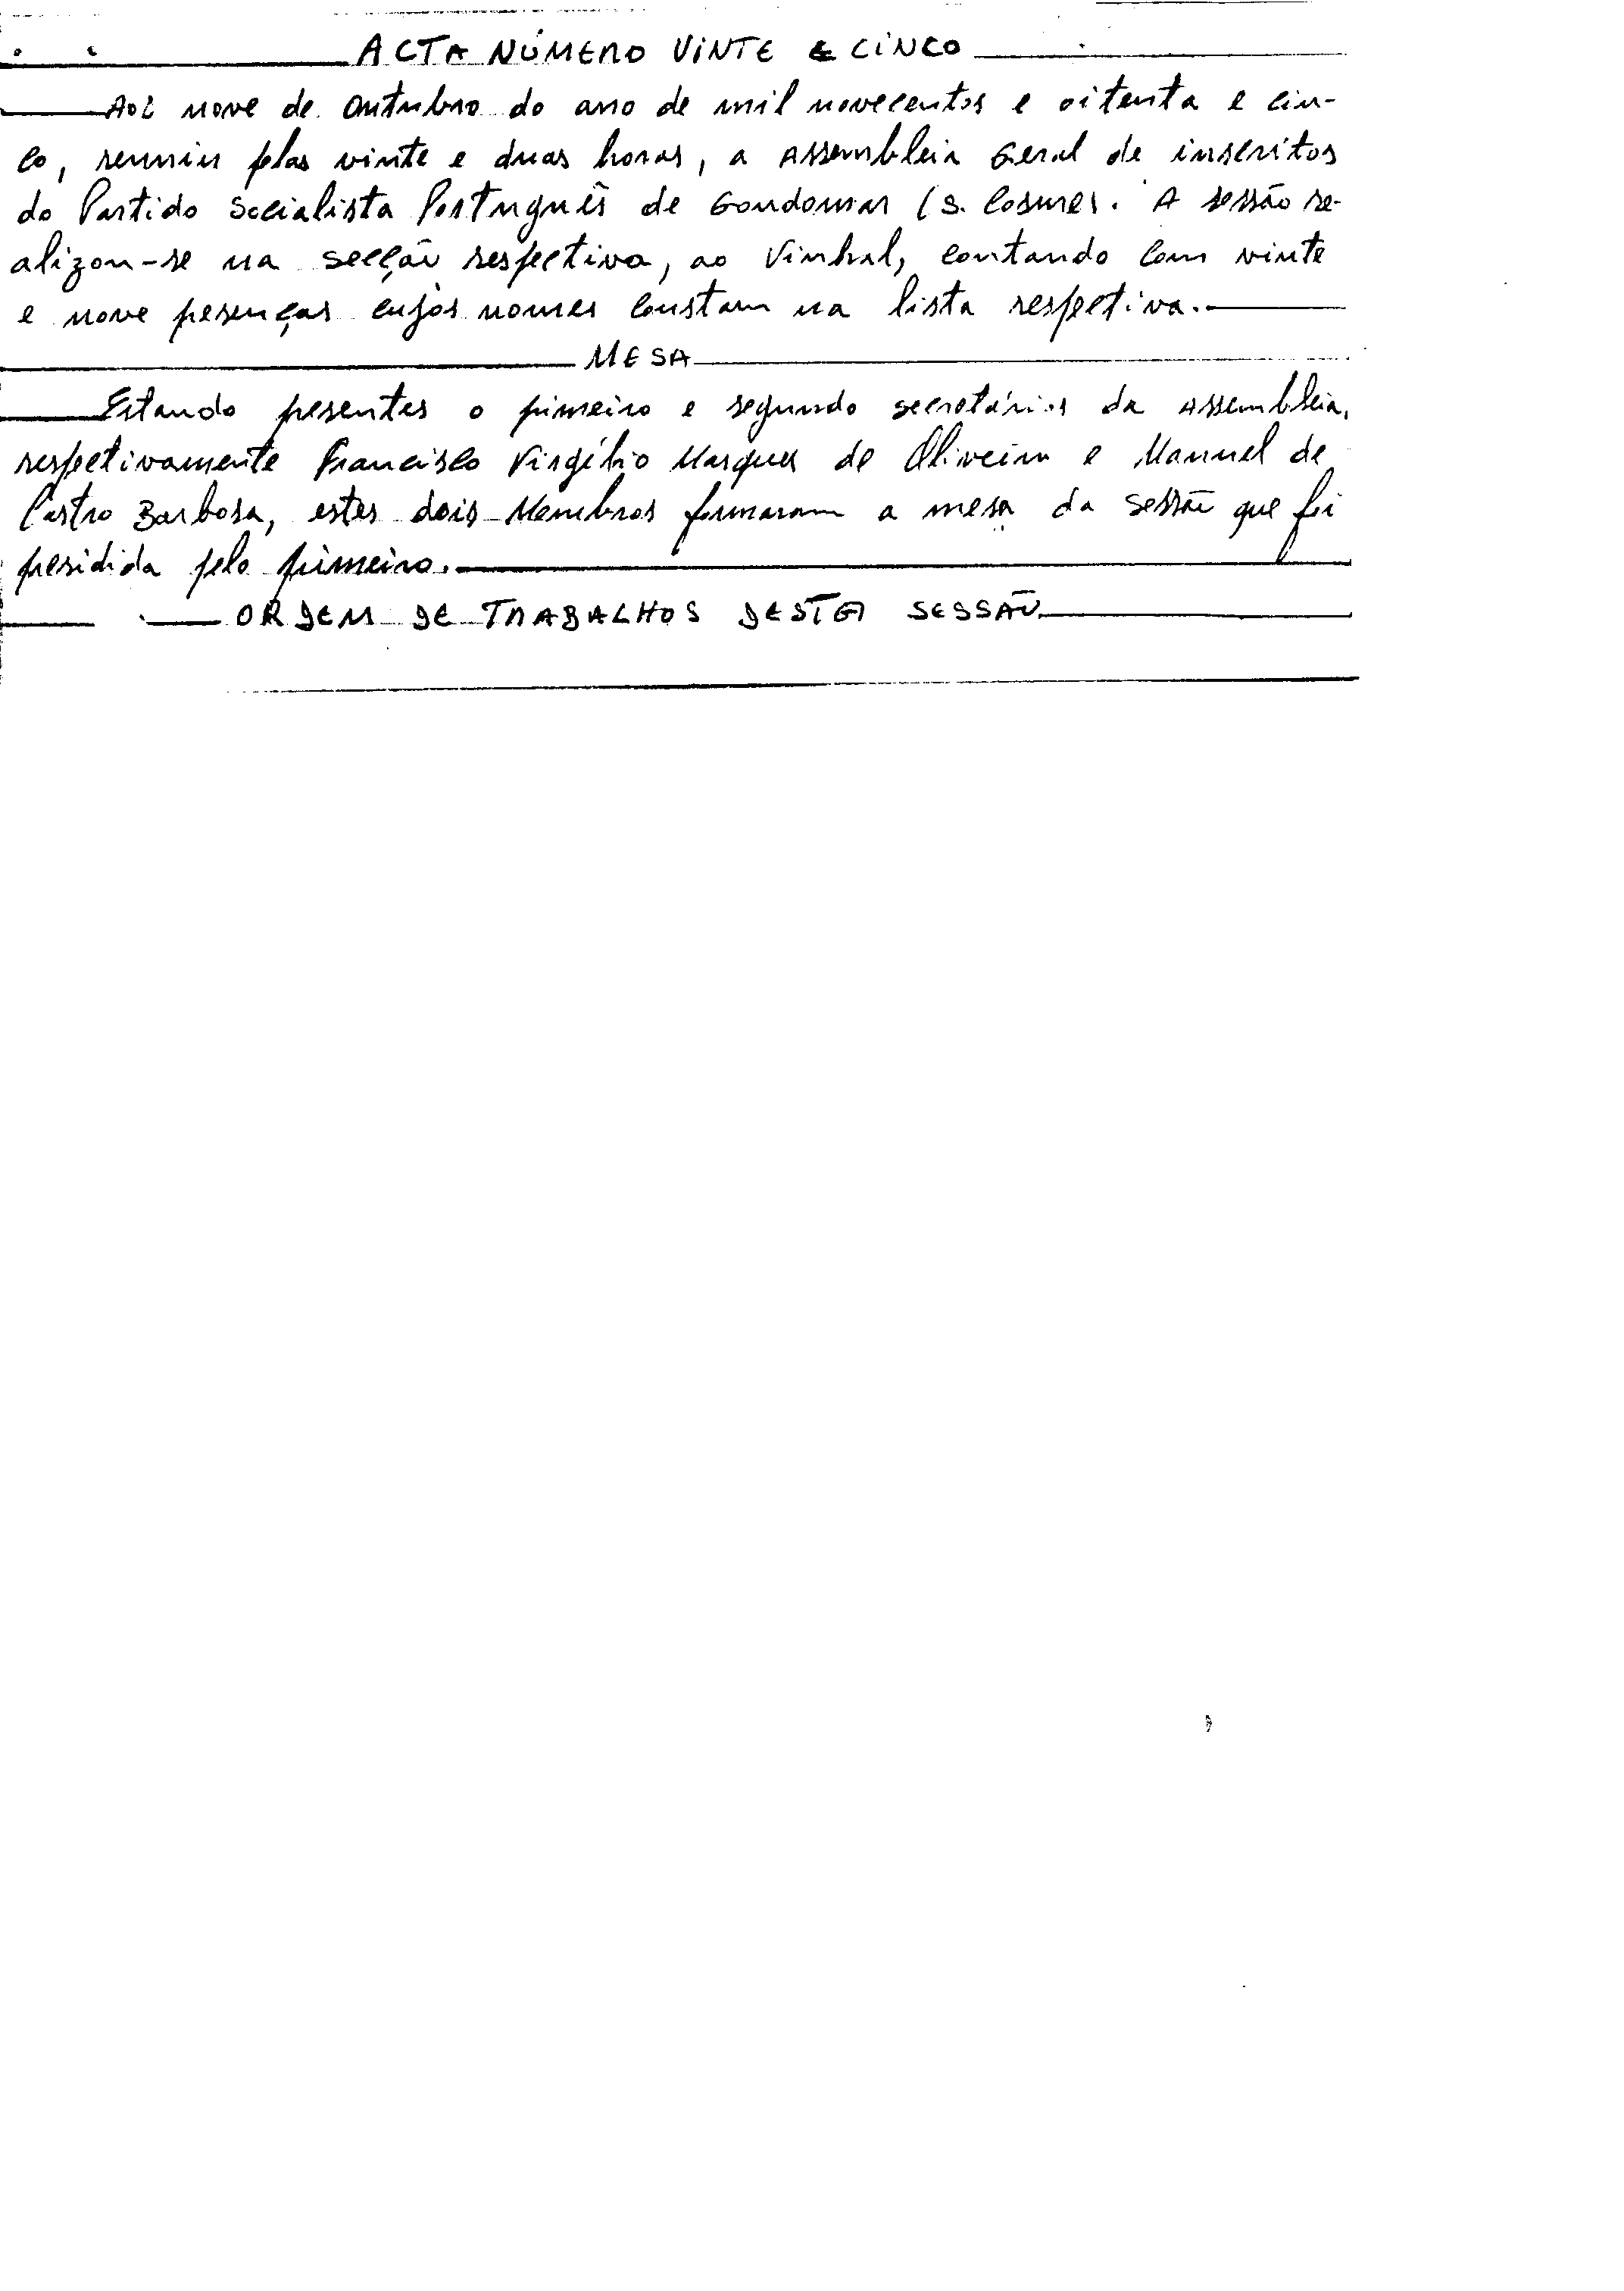 ACTA NÚMERO VINTE E CINCO
Aos nove de Outubro do ano de mil novecentos e oitenta e cin-
co, reuniu pelas vinte e duas horas, a Assembleia Geral de inscritos
do Partido Socialista Português de Gondomar (S. Cosme). A sessão re-
alizou-se na secção respectiva, ao Vinhal, contando com vinte
e nove presenças cujos nomes constam na lista respectiva.
MESA
Estando presentes o primeiro e segundo secretários da Assembleia,
respectivamente Francisco Virgílio Marques de Oliveira e Manuel de
Castro Barbosa, estes dois Membros formaram a mesa da sessão que foi
presidida pelo primeiro.
ORDEM DE TRABALHOS DESTA SESSÃO